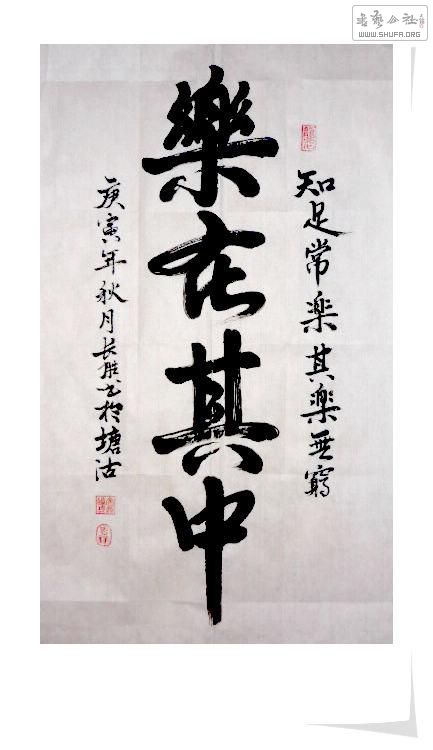 知足常楽其樂無窮
樂在其中
庚寅年秋月长胜书於塘沽
WWW.SHUFA.ORG